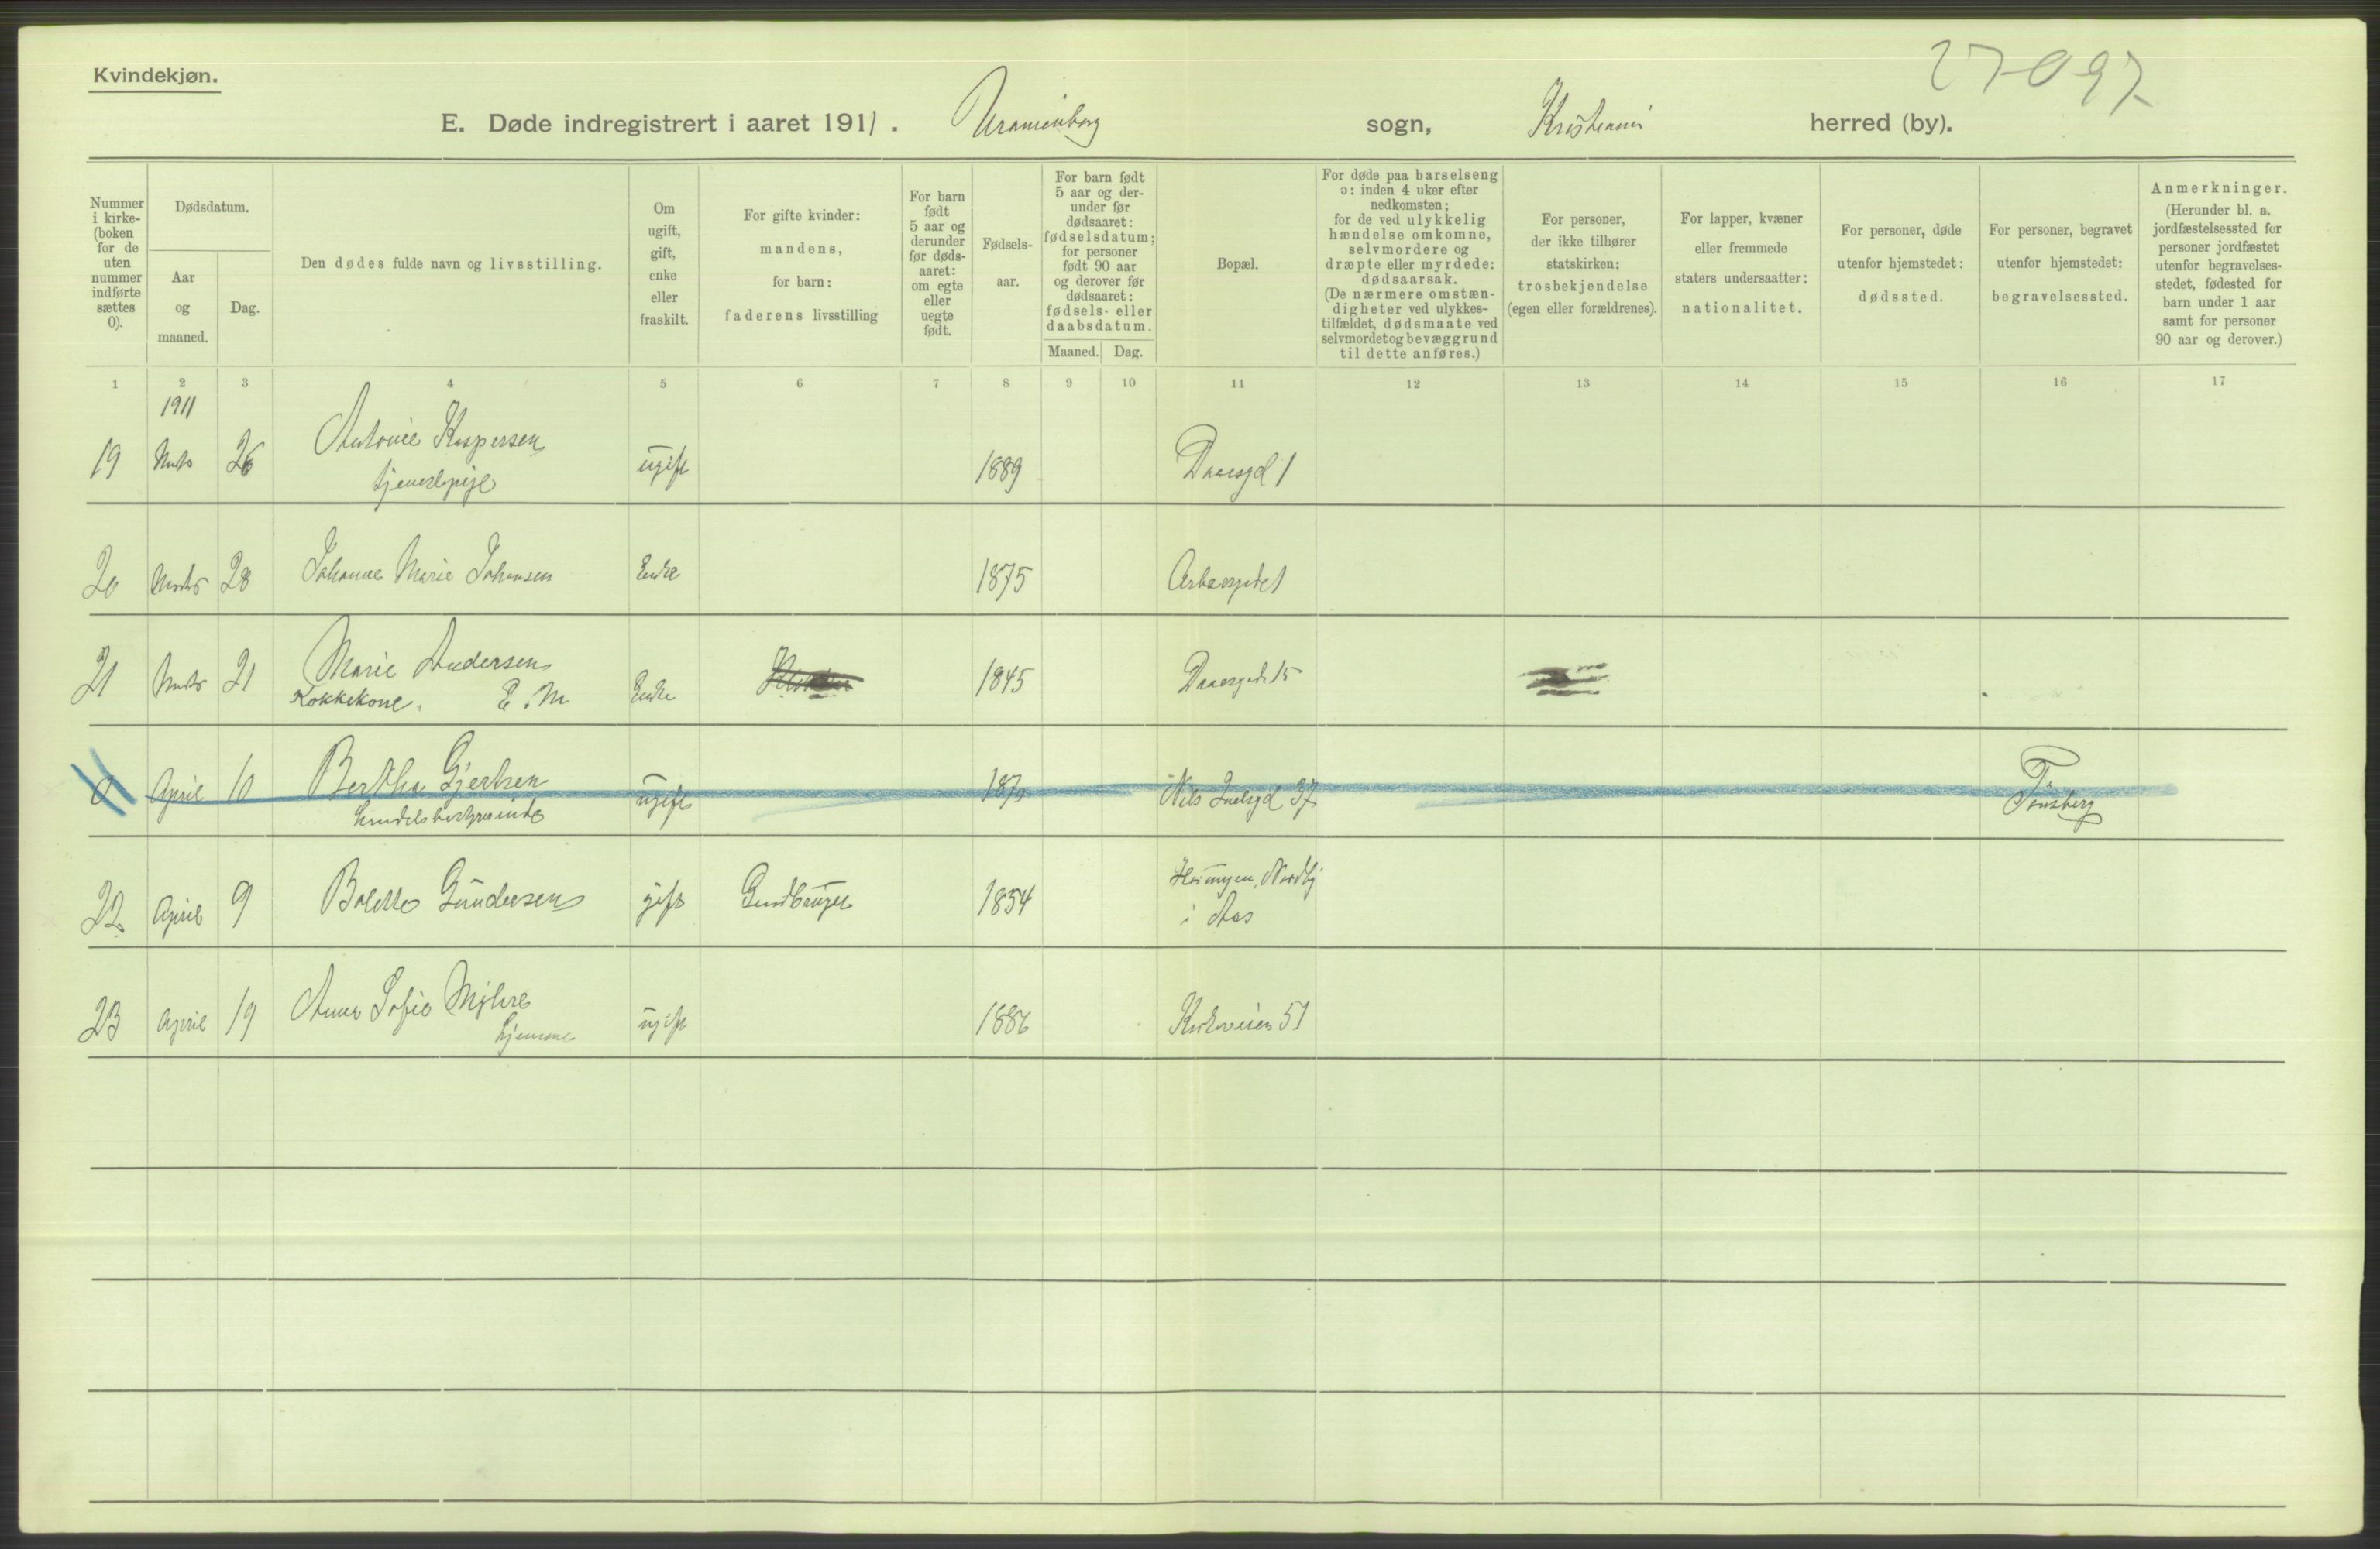 Kvindekjøn.
27097
E. Døde indregistrert i aaret 1911. Uranienborg sogn, Kristiania herred (by).
Nummer i kirke-(boken for de uten nummer indførte sættes 0).
Dødsdatum.
Aar og maaned.
Dag.
Den dødes fulde navn og livsstilling.
Om ugift, gift, enke eller fraskilt.
For gifte kvinder: mandens, for barn: faderens livsstilling
For barn født 5 aar og derunder før døds-aaret: om egte eller uegte født.
Fødsels-aar.
For barn født 5 aar og der-under før dødsaaret: fødselsdatum; for personer født 90 aar og derover før dødsaaret: fødsels- eller daabsdatum.
Maaned. Dag.
Bopæl.
For døde paa barselseng ɔ: inden 4 uker efter nedkomsten; for de ved ulykkelig hændelse omkomne, selvmordere og dræpte eller myrdede: dødsaarsak. (De nærmere omstæn-digheter ved ulykkes-tilfældet, dødsmaate ved selvmordet og bevæggrund til dette anføres.)
For personer, der ikke tilhører statskirken: trosbekjendelse (egen eller forældrenes).
For lapper, kvæner eller fremmede staters undersaatter: nationalitet.
For personer, døde utenfor hjemstedet: dødssted.
For personer, begravet utenfor hjemstedet: begravelsessted.
Anmerkninger. (Herunder bl. a. jordfæstelsessted for personer jordfæstet utenfor begravelses-stedet, fødested for barn under 1 aar samt for personer 90 aar og derover.)
1 2 3 4 5 6 7 8 9 10 11 12 13 14 15 16 17
1911
Antonie Kaspersen
19 Marts 26 tjenestepige ugift 1889 Daaesgd 1
20 Marts 28 Johanne Marie Johansen Enke 1875
Marie Andersen
21 Marts 21 Kokkekone. E. M. Enke 1845 Daaesgade 15
Bertha Gjertsen
0 April 10 Handelsbestyrerinde ugift 187 Nils Juelsgd 37 Tønsberg
22 April 9 Bolette Gundersen gift Gardbruger 1854 Nordby
i Aas
23 April 19 Anna Sofie Myhre
hjemme ugift 1886 Kirkeveien 51